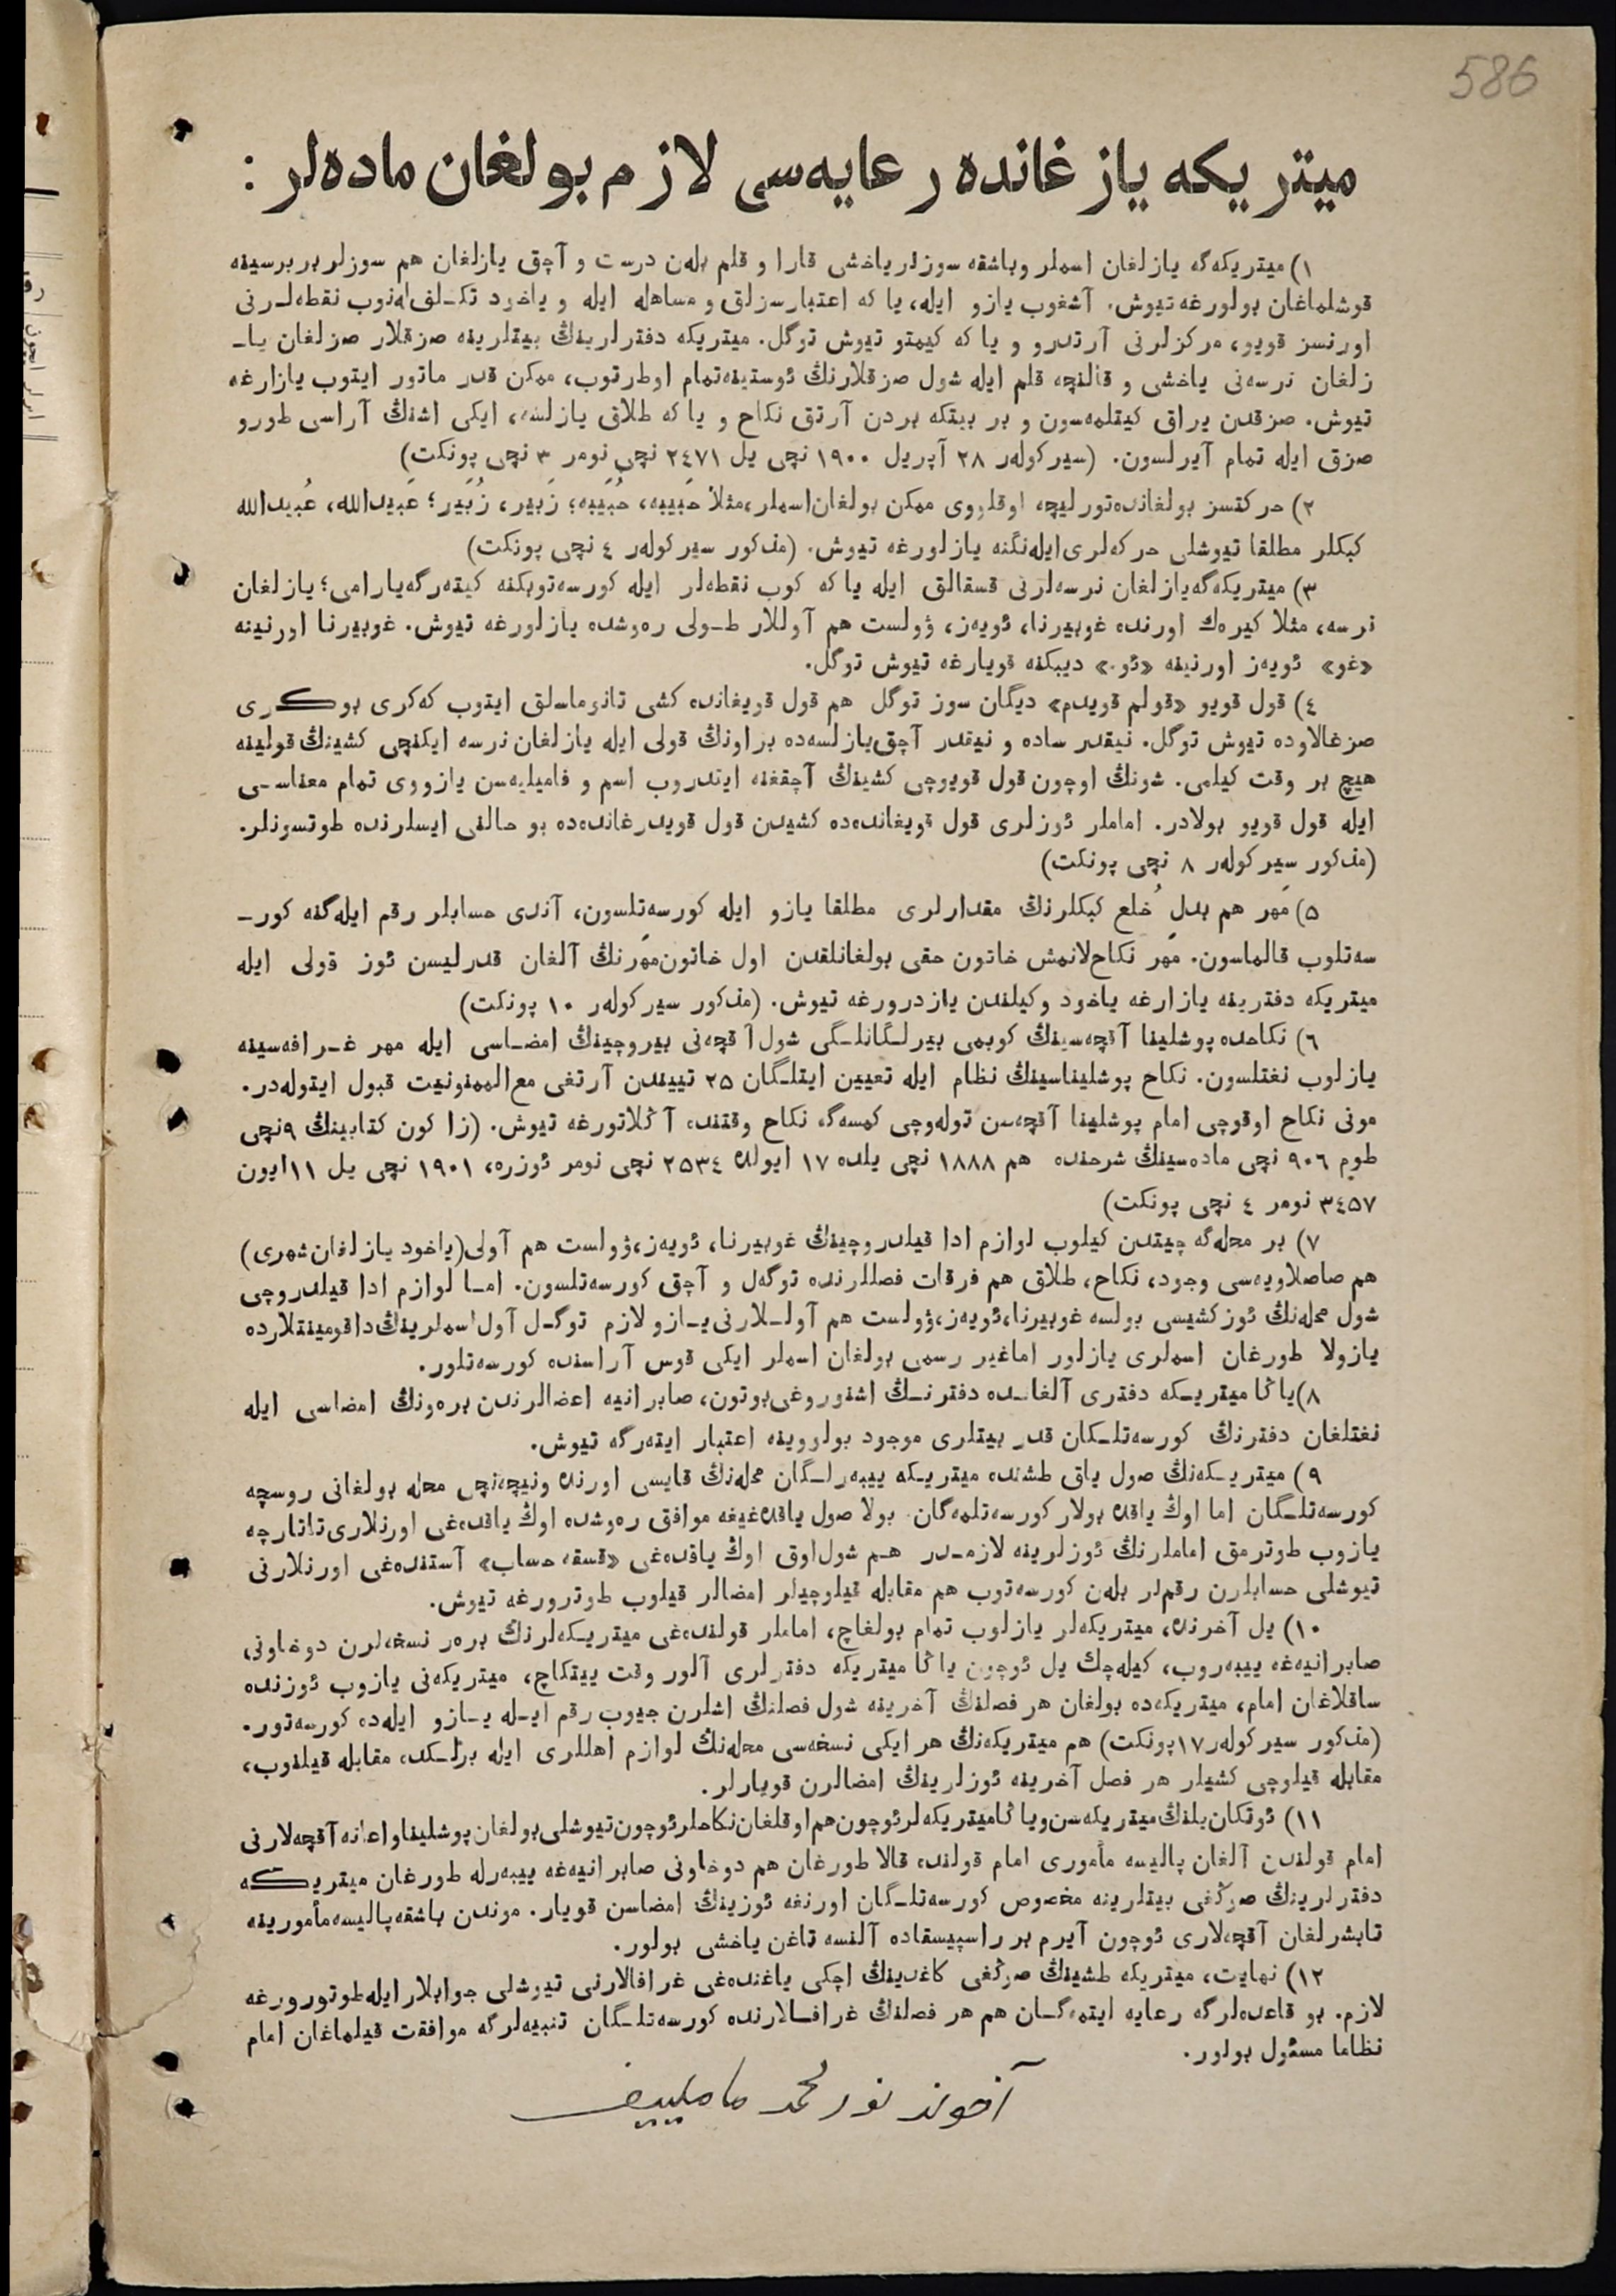 586
میتریکه یازغانده رعایه‌سی لازم بولغان ماده‌لر :
١) میتریکه‌گه یازلغان اسملر وباشقه سوزلر یاخشی قارا و قلم بله‌ن درست و آچق یازلغان هم سوزلر بربرسینه
قوشلماغان بولورغه تیوش. آشغوب یازو ایله، یا که اعتبارسزلق و مساهله ایله و یاخود تکـلف‌له‌نوب نقطه‌لـرنی
اورنسز قویو، مرکزلرنی آرتدرو و یا که کیمتو تیوش توگل. میتریکه دفترلرینڭ بیتلرینه صزقلار صزلغان یاـ
زلغان نرسه‌نی یاخشی و قالنچه قلم ایله شول صزقلارنڭ ئوستینه‌تمام اوطرتوب، ممکن قدر ماتور ایتوب یازارغه
تیوش. صزقدن یراق کیتلمه‌سون و بر بیتکه بردن آرتق نکاح و یا که طلاق یازلسه، ایکی اشنڭ آراسی طورو
صزق ایله تمام آیرلسون. (سیرکولەر ٢٨ آپریل ١٩٠٠ نچی یل ٢٤٧١ نچی نومر ٣ نچی پونکت)
٢) حرکتسز بولغانده‌تورلیچه اوقلووی ممکن بولغان‌اسملر،مثلا حَبیبه، حُبَیبه؛ زَبیر، زُبَیر؛ عَبیدالله، عُبیدالله
کبکلر مطلقا تیوشلی حرکه‌لری‌ایله‌نگنه یازلورغه تیوش. (مذکور سیرکولەر ٤ نچی پونکت)
٣) میتریکه‌گه‌یازلغان نرسه‌لرنی قسقالق ایله یا که کوب نقطه‌لر ایله کورسه‌توبکنه کیته‌رگه‌یارامی؛ یازلغان
نرسه، مثلا کیره‌ك اورنده غوبیرنا، ئویەز، ۋولست هم آوللار طـولی ره‌وشده یازلورغه تیوش. غوبیرنا اورنینه
«غو» ئویەز اورنینه «ئو.» دیبکنه قویارغه تیوش توگل.
٤) قول قویو «قولم قویدم» دیگان سوز توگل هم قول قویغانده کشی تانوماسلق ایتوب که‌کری بوکـری
صزغالاوده تیوش توگل. نیقدر ساده و نیقدر آچق‌یازلسه‌ده براونڭ قولی ایله یازلغان نرسه ایکنچی کشینڭ قولینه
هیچ بر وقت کیلمی. شونڭ اوچون قول قویوچی کشینڭ آچقغنه ایتدروب اسم و فامیلیه‌سن یازووی تمام معناسـی
ایله قول قویو بولادر. اماملر ئوزلری قول قویغانده‌ده کشیدن قول قویدرغانده‌ده بو حالنی ایسلرنده طوتسونلر.
(مذکور سیرکولەر ٨ نچی پونکت)
٥) مَهر هم بدلِ خُلع کبکلرنڭ مقدارلری مطلقا یازو ایله کورسه‌تلسون، آندی حسابلر رقم ایله‌گنه کورـ
سه‌تلوب قالماسون. مَهر نکاح‌لانمش خاتون حقی بولغانلقدن اول خاتون‌مَهرنڭ آلغان قدرلیسن ئوز قولی ایله
میتریکه دفترینه یازارغه یاخود وکیلندن یازدرورغه تیوش. (مذکور سیرکولەر ١٠ پونکت)
٦) نکاحده پوشلینا آقچه‌سینڭ کوبمی بیرلـگانلـگی شول آقچه‌نی بیروچینڭ امضـاسی ایله مهر غـرافه‌سینه
یازلوب نغتلسون. نکاح پوشلیناسینڭ نظام ایله تعیین ایتلـگان ٢٥ تییندن آرتغی مع‌الممنونیت قبول ایتوله‌در.
مونی نکاح اوقوچی امام پوشلینا آقچه‌سن توله‌وچی کمسه‌گه نکاح وقتنده آڭلاتورغه تیوش. (زا کون کتابینڭ ٩نچی
طوم ٩٠٦ نچی ماده‌سینڭ شرحنده هم ١٨٨٨ نچی یلده ١٧ ایولده ٢٥٣٤ نچی نومر ئوزره، ١٩٠١ نچی یل ١١ایون
٣٤٥٧ نومر ٤ نچی پونکت)
٧) بر محله‌گه چیتدن کیلوب لوازم ادا قیلدروچینڭ غوبیرنا، ئویەز،ۋولست هم آولی(یاخود یازلغان‌شهری)
هم صاصلاویه‌سی وجود، نکاح، طلاق هم فرقات فصللرنده توگه‌ل و آچق کورسه‌تلسون. امـا لوازم ادا قیلدروچی
شول محله‌نڭ ئوزکشیسی بولسه غوبیرنا،ئویەز،ۋولست هم آولـلارنی‌یـازو لازم توگـل آول‌اسملرینڭ‌داقومینتلارده
یازولا طورغان اسملری یازلور اماغیر رسمی بولغان اسملر ایکی قوس آراسنده کورسه‌تلور.
٨)یاڭا میتریـکه دفتری آلغانـده دفترنـڭ اشنوروغی‌بوتون، صابرانیه اعضالرندن بره‌ونڭ امضاسی ایله
نغتلغان دفترنڭ کورسه‌تلـکان قدر بیتلری موجود بولووینه اعتبار ایته‌رگه تیوش.
٩) میتریـکه‌نڭ صول یاق طشنده میتریـکه ییبه‌رلـگان محله‌نڭ قایسی اورنده ونیچه‌نچی محله بولغانی روسچه
کورسه‌تلـگان اما اوڭ یاقده بولار کورسه‌تلمه‌گان. بولا صول یاقده‌غیغه موافق ره‌وشده اوڭ یاقده‌غی اورنلاری‌تاتارچه
یازوب طوترمق اماملرنڭ ئوزلرینه لازمـدر هـم شول‌اوق اوڭ یاقده‌غی «قسقه حساب» آستنده‌غی اورنلارنی
تیوشلی حسابلرن رقملر بله‌ن کورسه‌توب هم مقابله قیلوچیلر امضالر قیلوب طوترورغه تیوش.
١٠) یل آخرنده، میتریکه‌لر یازلوب تمام بولغاچ، اماملر قولنده‌غی میتریـکه‌لرنڭ بره‌ر نسخه‌لرن دوخاونی
صابرانیه‌غه ییبه‌روب، کیله‌چك یل ئوچون یاڭا میتریکه دفترلری آلور وقت ییتکاچ، میتریکه‌نی یازوب ئوزنده
ساقلاغان امام، میتریکه‌ده بولغان هر فصلنڭ آخرینه شول فصلنڭ اشلرن جیوب رقم ایـله یـازو ایله‌ده کورسه‌تور.
(مذکور سیرکولەر١٧پونکت) هم میتریکه‌نڭ هر ایکی نسخه‌سی محله‌نڭ لوازم اهللری ایله برلـکده مقابله قیلنوب،
مقابله قیلوچی کشیلر هر فصل آخرینه ئوزلرینڭ امضالرن قویارلر.
١١) ئوتکان‌یلنڭ‌میتریکه‌سن‌ویاڭامیتریکه‌لرئوچون‌هم‌اوقلغان‌نکاحلرئوچون‌تیوشلی‌بولغان‌پوشلیناواعانه‌آقچه‌لارنی
امام قولندن آلغان پالیسه مأموری امام قولنده قالا طورغان هم دوخاونی صابرانیه‌غه ییبه‌رله طورغان میتریـکه
دفترلرینڭ صوڭغی بیتلرینه مخصوص کورسه‌تلـگان اورنغه ئوزینڭ امضاسن قویار. موندن باشقه‌پالیسه‌مأمورینه
تابشرلغان آقچه‌لاری ئوچون آیرم بر راسپیسقاده آلنسه تاغن یاخشی بولور.
١٢) نهایت، میتریکه طشینڭ صوڭغی کاغدینڭ اچکی یاغنده‌غی غرافالارنی تیوشلی جوابلار ایله‌طوتورورغه
لازم. بو قاعده‌لرگه رعایه ایتمه‌گـان هم هر فصلنڭ غرافـالارنده کورسه‌تلـگان تنبیه‌لرگه موافقت قیلماغان امام
نظاما مسئول بولور.
آخوند نورمحمد مامليیف